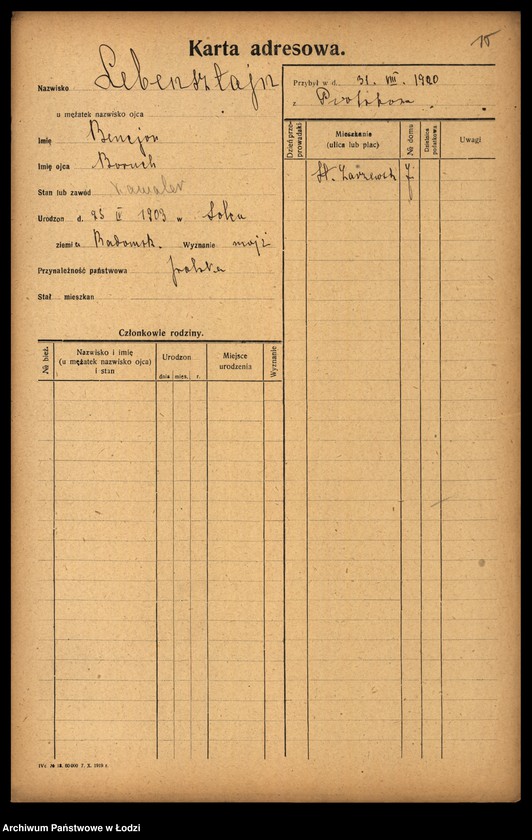 Karta adresowa.
15
Nazwisko Lebensztajn
u mężatek nazwisko ojca
Imię Bencjon
Imię ojca Boruch
Stan lub zawód kawaler
Urodzon d. 25 IV 1903 w
ziemi Radomsk. Wyznanie mojż
Przynależność państwowa polska
Stał. mieszkan
Przybył w d. 31. VIII. 1920
z Piotrkowa
Dzień przeprowadzki
Mieszkanie (ulica lub plac)
№ domu
Dzielnica podatkowa
Uwagi
St. Zarzewsk 7
Członkowie rodziny.
№ bież.
Nazwisko i imię
(u mężatek nazwisko ojca)
i stan
Urodzon
dnia mies. r.
Miejsce urodzenia
Wyznanie
Archiwum Państwowe w Łodzi